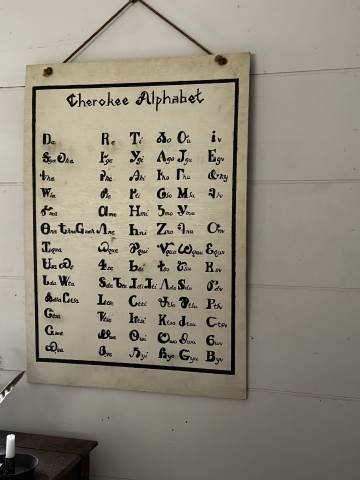 Cherokee Alphabet
Ꭰa Ꭱe Ꭲi Ꭳo Ꭴu Ꭵv
Ꭶga Ꭷka Ꭸge Ꭹgi Ꭺgo Ꭻgu Ꭼgv
Ꭽha Ꭾhe Ꭿhi Ꮀho Ꮁhu
Ꮃla Ꮄle Ꮅli Ꮆlo Ꮇlu Ꮈlv
Ꮉma Ꮊme Ꮋmi Ꮌmo Ꮍmu
Ꮎna Ꮏhna Ꮐnah Ꮑne Ꮒni Ꮓno Ꮔnu Ꮕnv
Ꮖqua Ꮗque Ꮘqui Ꮙquo Ꮚquu Ꮛquv
Ꮜsa Ꮝs Ꮞse Ꮟsi Ꮠso Ꮡsu Ꮢsv
Ꮣda Ꮤta Ꮥde Ꮦte Ꮧdi Ꮨti Ꮩdo Ꮪdu Ꮫdv
Ꮬdla Ꮭtla Ꮮtle Ꮯtli Ꮰtlo Ꮱtlu Ꮲtlv
Ꮳtsa Ꮴtse Ꮵtsi Ꮶtso Ꮷtsu Ꮸtsv
Ꮹwa Ꮺwe Ꮻwi Ꮼwo Ꮽwu Ꮾwv
Ꮿya Ᏸye Ᏹyi Ᏺyo Ᏻyu Ᏼyv